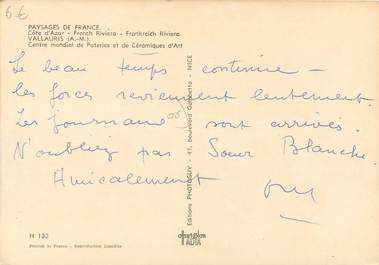 6€
PAYSAGES DE FRANCE.
Côte d'Azur - French Riviera - Frankreich Riviera.
VALLAURIS (A.-M.).
Centre mondial de Poteries et de Céramiques d'Art
Le beau temps continue -
les forces reviennent lentement.
Les journaux sont arrivés.
N'oubliez pas Sœur Blanche.
Amicalement
Editions PHOTOGUY - 47, boulevard Gambetta - NICE
H 133
Printed in France - Reproduction interdite